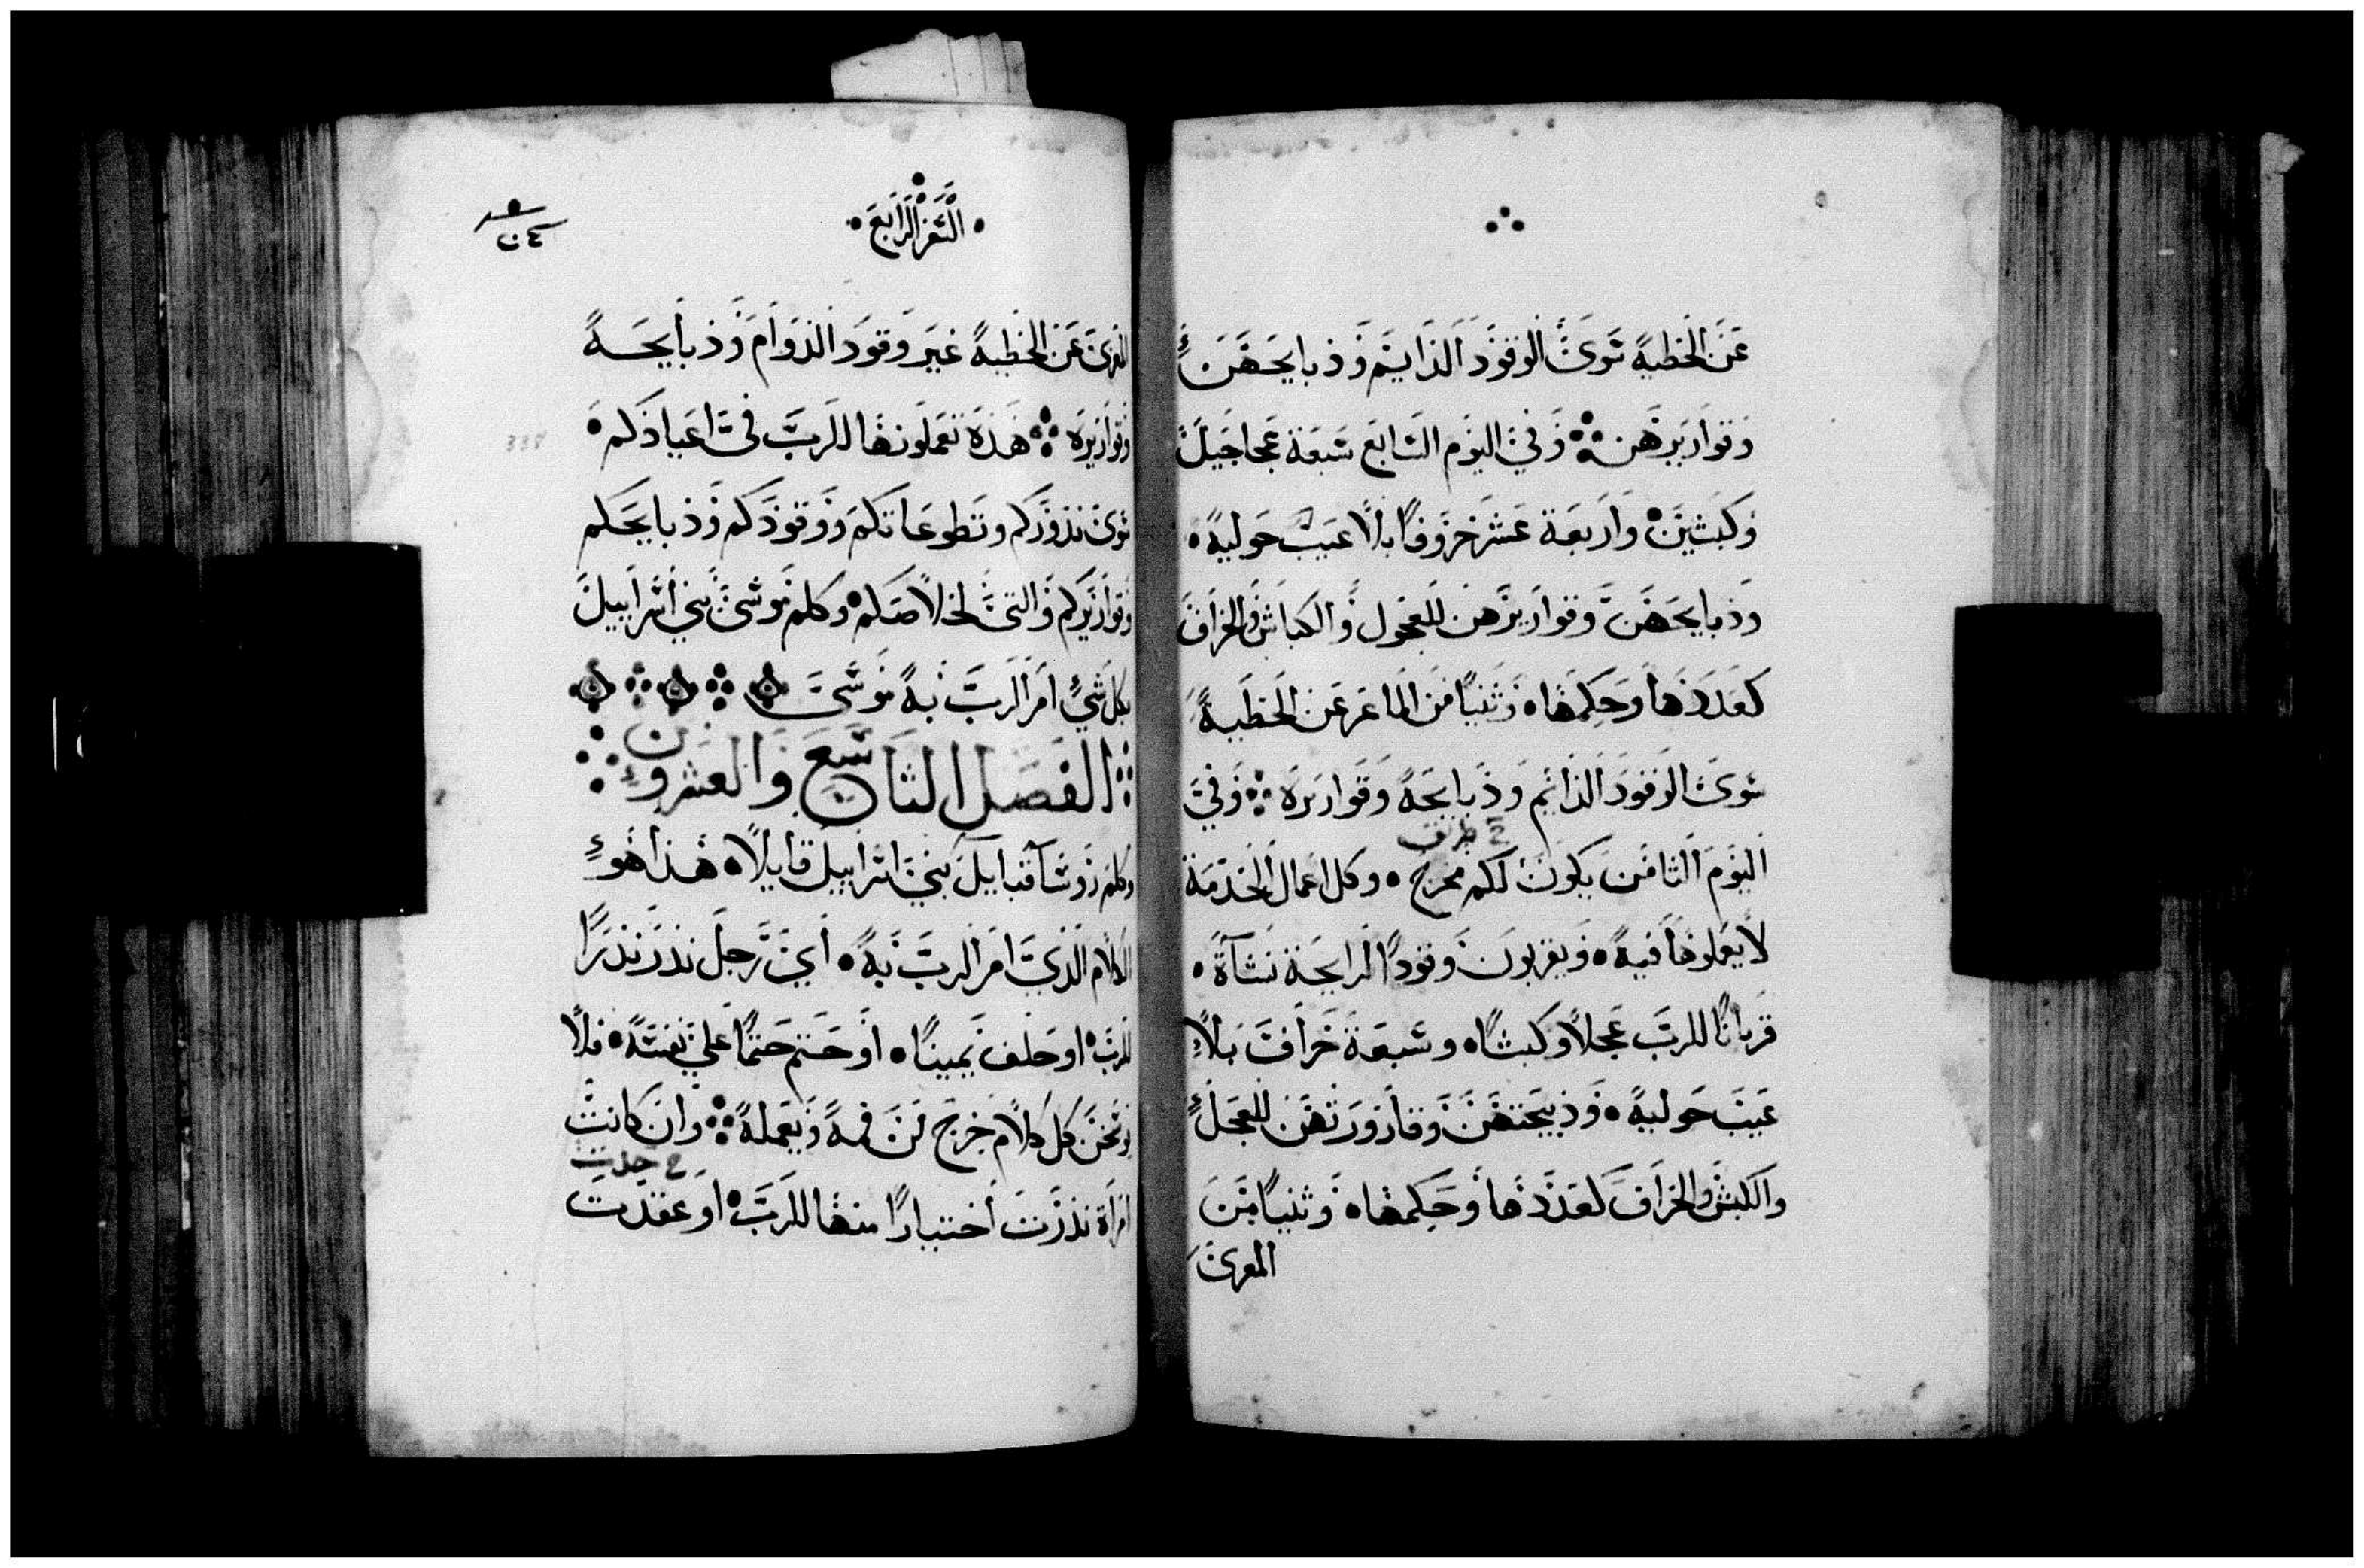 عن الخطية سوى الوقود الدايم وذبايحهن
وقواريرهن وفي اليوم السابع سبعة عجاجيل
وكبشين واربعة عشر خروفا بلا عيب حولية
وذبايحهن وقواريرهن للعجول والكباش والخراف
كعددها وحكمها وثنيا من الماعز عن الخطية
سوى الوقود الدايم وذبايحه وقواريره وفي
خ طريق
اليوم الثامن يكون لكم مخرج وكل اعمال الخدمة
لا يعملوها فيه ويقربون وقودا لرايحة نشاة
قربانا للرب عجلا وكبشا وسبعة خراف بلا
عيب حولية وذبيحتهن وقارورتهن للعجل
والكبش والخراف كعددها وحكمها وثنيا من
المعزى
السفر الرابع
المعزى عن الخطية غير وقود الدوام وذبايحه
وقواريره هذه تعملونها للرب في اعيادكم
سوى نذوركم وتطوعاتكم ووقودكم وذبايحكم
وقواريركم والتي لخلاصكم وكلم موسى بني اسراييل
بكل شي امر الرب به موسى
الفصل التاسع والعشرون
وكلم روسآ قبايل بني اسراييل قايلا هذا هو
الكلام الذي امر الرب به اي رجل نذر نذرا
للرب او حلف يمينا او حتم حتما على نفسه فلا
ينجس كل كلام خرج من فمه ويعمله وان كانت
خ حددت
امراة نذرت اختيارا منها للرب او عقدت